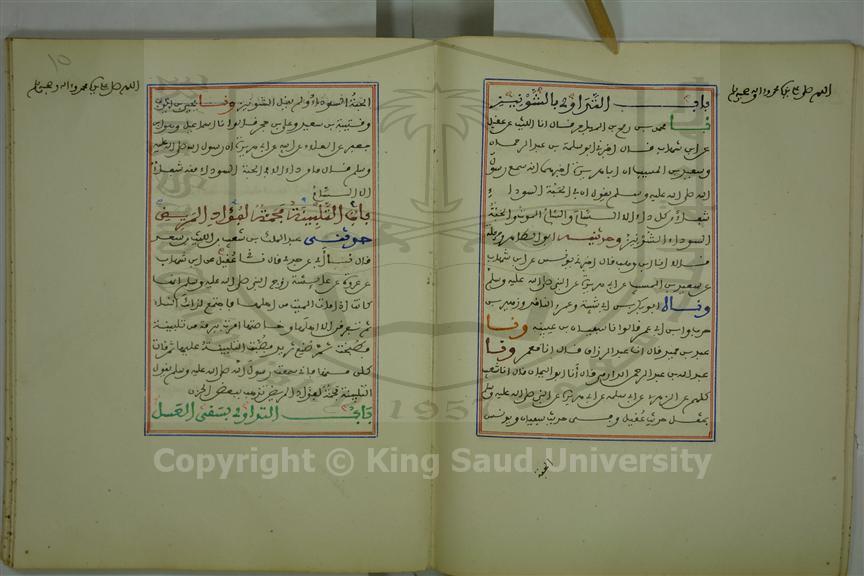 اللهم صل على محمد واله وصحبه وسلم
باب التداوي بالشونيز
نا محمد بن رمح بن المهاجر قال انا الليث عن عقيل
عن ابن شهاب قال اخبرني ابو سلمة بن عبد الرحمان
وسعيد بن المسيب ان ابا هريرة اخبرهما انه سمع رسول
الله صلى الله عليه وسلم يقول ان في الحبة السوداء
شفاء من كل داء الا السام والسام الموت والحبة
السوداء الشونيز وحدثنيه ابو الطاهر وحرملة
قالا انا ابن وهب قال اخبرني يونس عن ابن شهاب
عن سعيد بن المسيب عن ابي هريرة عن النبي صلى الله عليه وسلم
وناه ابو بكر بن ابي شيبة وعمرو الناقد وزهير بن
حرب وابن ابي عمر قالوا نا سفيان بن عيينة ونا
عبد بن حميد قال انا عبد الرزاق قال انا معمر ونا
عبد الله بن عبد الرحمن الدارمي قال أنا ابو اليمان قال انا شعيب
كلهم عن الزهري عن ابي سلمة عن ابي هريرة عن النبي صلى الله عليه وسلم
بمثل حديث عقيل وفي حديث سفيان ويونس
الحبة
اللهم صل على محمد واله وصحبه وسلم
١٥
الحبة السوداء ولم يقل الشونيز ونا يحيى بن ايوب
وقتيبة بن سعيد وعلي بن حجر قالوا نا اسماعيل وهو ابن
جعفر عن العلاء عن ابيه عن ابي هريرة ان رسول الله صلى الله عليه
وسلم قال ما من داء الا في الحبة السوداء منه شفاء
الا السام
باب التلبينة مجمة لفؤاد المريض
حدثني عبد الملك بن شعيب بن الليث بن سعد
قال نا أبي عن جدي قال نا عقيل عن ابن شهاب
عن عروة عن عايشة زوج النبي صلى الله عليه وسلم انها
كانت اذا مات الميت من اهلها فاجتمع لذلك النسا
ثم تفرقن الا اهلها وخاصتها امرت ببرمة من تلبينة
فطبخت ثم صنع ثريد فصبت التلبينة عليها ثم قالت
كلن منها فاني سمعت رسول الله صلى الله عليه وسلم يقول
التلبينة مجمة لفؤاد المريض تذهب بعض الحزن
باب التداوي بسقي العسل
1957
Copyright © King Saud University